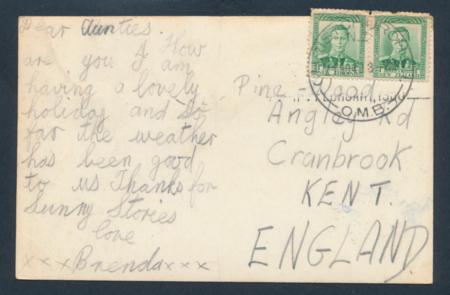 Dear Aunties.
How
are you I am
having a lovely
holiday and so
far the weather
has been good
to us Thanks for
Sunny Stories
love
xxx Brenda xxx
Pine Wood
Angley Rd
Cranbrook
KENT.
ENGLAND.